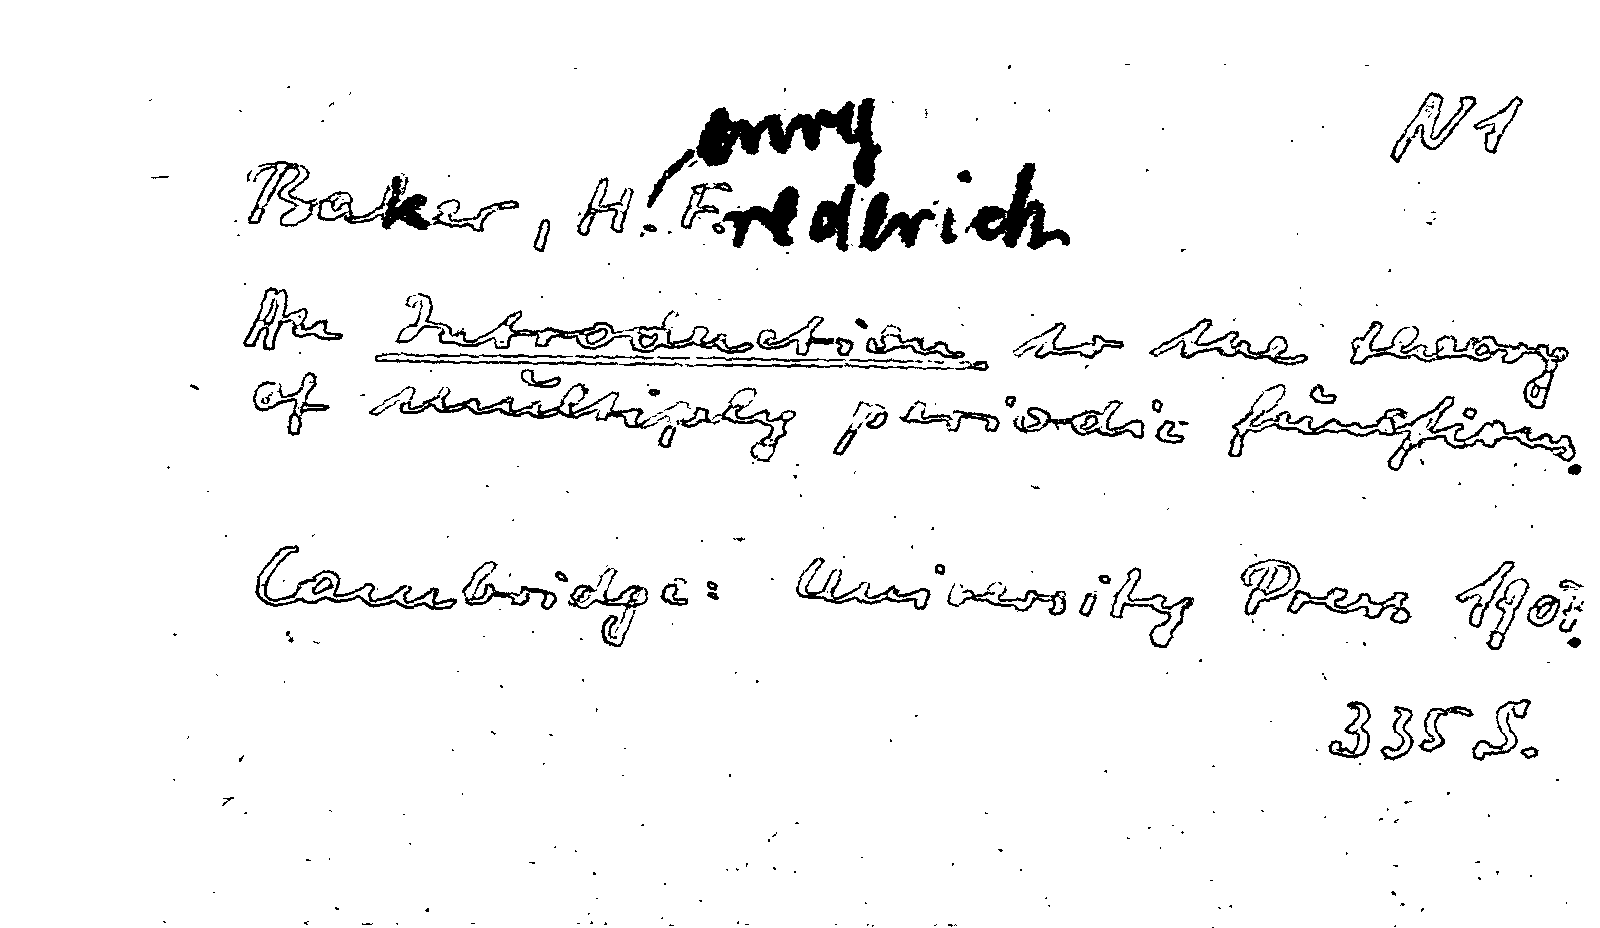 N1
Baker, H.enry F.rederich
An Introduction to the theory
of multiply periodic functions.
Cambridge: University Press 1907.
335 S.